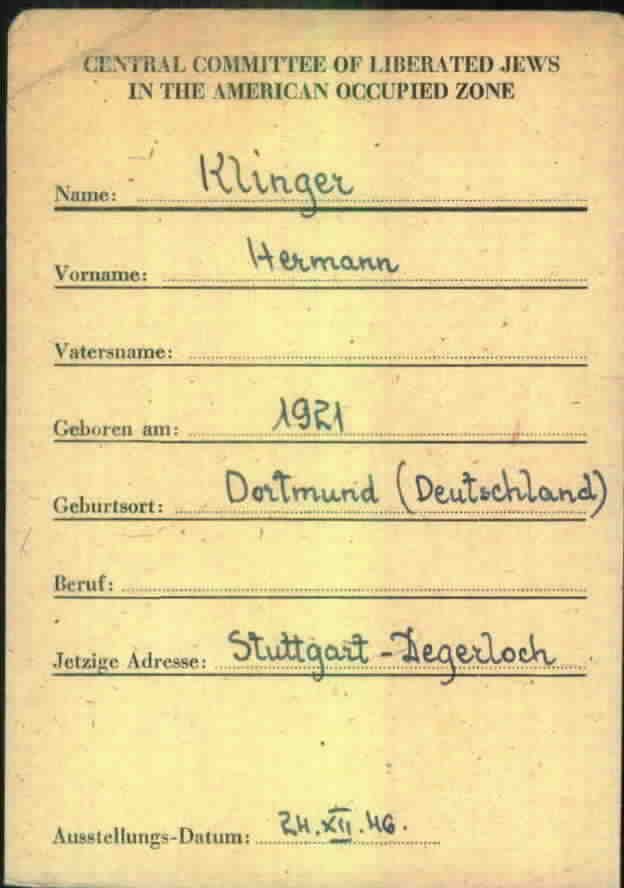 CENTRAL COMMITTEE OF LIBERATED JEWS
IN THE AMERICAN OCCUPIED ZONE
Name: Klinger
Vorname: Hermann
Vatersname:
Geboren am: 1921
Geburtsort: Dortmund (Deutschland)
Beruf:
Jetzige Adresse: Stuttgart-Degerloch
Ausstellungs-Datum: 24.XII.46.